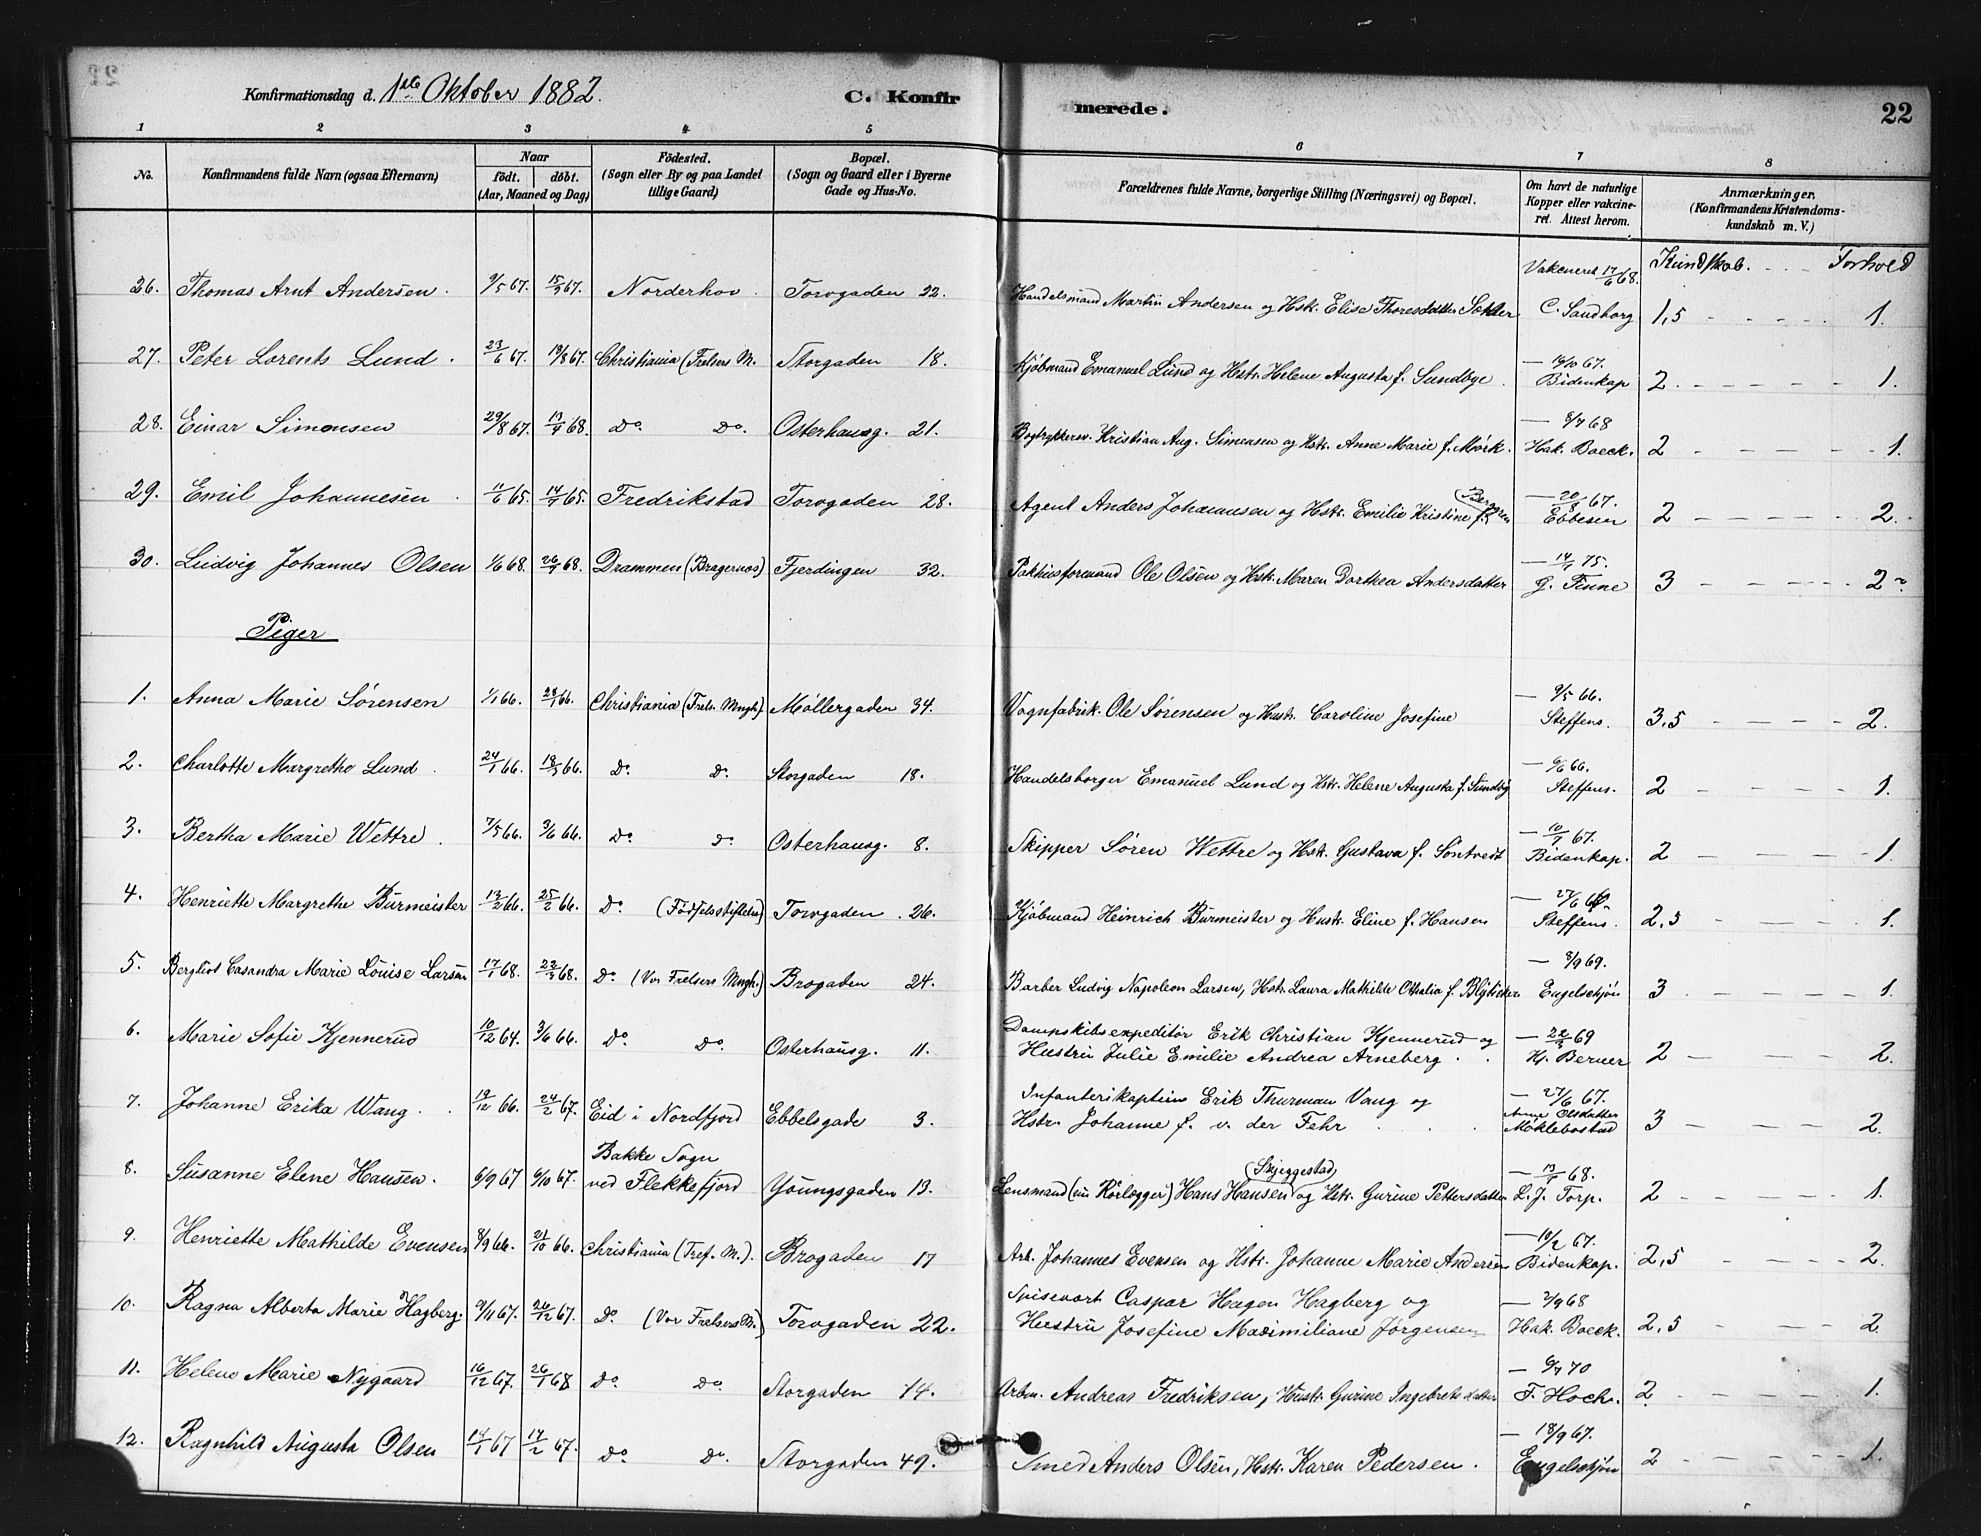 Konfirmationsdag d. 1ste Oktober 1882. C. Konfirmerede. 22
1 2 3 4 5 6 7 8
No. Konfirmandens fulde Navn (ogsaa Efternavn) Naar født. døbt. (Aar, Maaned og Dag) Fødested. (Sogn eller By og paa Landet tillige Gaard) Bopæl. (Sogn og Gaard eller i Byerne Gade og Hus-No. Forældrenes fulde Navne, borgerlige Stilling (Næringsvei) og Bopæl. Om havt de naturlige Kopper eller vakcineret. Attest herom. Anmærkninger, (Konfirmandens Kristendomskundskab m. V.)
Kundskab. Forhold
26. Thomas Arnt Andersen. 9/5 67. 15/9 67. Norderhov. Torvgaden 22. Handelsmand Martin Andersen og Hstr. Elise Thoresdatter Vakcineret 17/6 68. C. Sandborg 1,5 - - - - - 1.
27. Peter Lorents Lund. 23/6 67. 18/8 67. Christiania (Frelsers M. Storgaden 18. Kjøbmand Emanuel Lund og Hstr. Helene Augusta f. Sundbye. — 16/10 67. Bidenkap 2. - - - - - 1.
28. Einar Simonsen 29/8 67. 13/4 68. Do. Do. Osterhausg. 21. Bogtrykkersv. Kristian Aug. Simensen og Hstr. Anne Marie f. Mørk. — 8/7 68 Hak. Boeck. 2 - - - - - 1.
29. Emil Johannesen. 11/6 65. 14/7 65. Fredrikstad Torvgaden 28. Agent Anders Johannesen og Hstr. Emilie Kristine f. Berggren — 20/8 67. Ebbesen 2 - - - - - 2.
30. Ludvig Johannes Olsen 1/6 68. 26/7 68. Drammen (Bragernes) Fjerdingen 32. Pakhusformand Ole Olsen og Hstr. Maren Dorthea Andersdatter — 14/7 75. G. Finne 3 - - - - - 2
Piger
1. Anna Marie Sørensen 1/1 66. 28/1 66. Christiania (Frels. Mngh.) Møllergaden 34. Vognfabrik. Ole Sørensen og Hustr. Caroline Josefine — 9/5 66. Steffens. 3,5 - - - - 2.
2. Charlotte Margrethe Lund. 24/1 66. 18/3 66. Do. Do. Storgaden 18. Handelsborger Emanuel Lund og Hstr. Helene Augusta f. Sundby — 6/6 66. Steffens. 2 - - - - 1.
3. Bertha Marie Wettre. 7/5 66. 3/6 66. Do. Do. Osterhausg. 8. Skipper Søren Wettre og Hstr. Gustava f. Sontvedt — 10/9 67. Bidenkap. 2 - - - - 1.
4. Henriette Margrethe Burmeister 13/2 66. 25/2 66. Do. (Fødselsstiftelsen) Torvgaden. 26. Kjøbmand Heinrich Burmeister og Hustr. Eline f. Hansen — 27/6 66 Steffens. 2,5 - - - - 1.
5. Bergliot Casandra Marie Louise Larsen 17/1 68. 22/3 68. Do. (Vor Frelsers Mngh.) Brogaden 24. Barber Ludvig Napoleon Larsen, Hstr. Laura Mathilde Othalia f. — 8/9 69. Engelschjøn 3. - - - - 1.
6. Marie Sofie Kjennerud 10/12 64. 3/6 66. Do. Do. Osterhausg. 11. Dampskibsexpeditør Erik Christian Kjennerud og
Hustru Julie Emilie Andrea Arneberg. — 22/5 69 Hj. Berner 2 - - - - 2.
7. Johanne Erika Wang. 19/12 66. 24/2 67. Eid i Nordfjord Ebbelsgade 3. Infanterikaptein Erik Thurman Vang og
Hstr. Johanne f. v. der Fehr — 27/6 67. Anne Olsdatter Møklebostad 3 - - - - 2.
8. Susanne Elene Hansen. 6/9 67 6/10 67. Bakke Sogn ved Flekkefjord Youngsgaden 13. Lensmand (nu Kørlogger) Hans Hansen (Skjeggestad) og Hstr. Gurine Pettersdatter — 13/7 68. L. J. Torp. 2 - - - - 1.
9. Henriette Mathilde Evensen 8/9 66. 21/10 66. Christiania (Fref. M.). Brogaden 17 Arb. Johannes Evensen og Hstr. Johanne Marie Andersen — 18/2 67. Bidenkap. 2,5 - - - - 2.
10. Ragna Alberta Marie Hagberg. 9/11 67. 26/12 67. Do. (Vor Frelsers M.) Torvgaden 22. Spisevært Caspar Hagen Hagberg og
Hustru Josefine Maximiliane Jørgensen — 2/9 68 Hak. Boeck. 2,5 - - - - 2.
11. Helene Marie Nygaard 16/12 67. 26/1 68 Do. Do. Storgaden 14. Arbm. Andreas Fredriksen, Hustr. Gurine Ingebretsdatter — 6/7 70 F. Hoch. 2. - - - - 1.
12. Ragnhild Augusta Olsen 14/1 67 17/2 67. Do. Do. Storgaden 49. Smed Anders Olsen, Hstr. Karen Pedersen. — 18/9 67. Engelschjøn 2 - - - - 1.